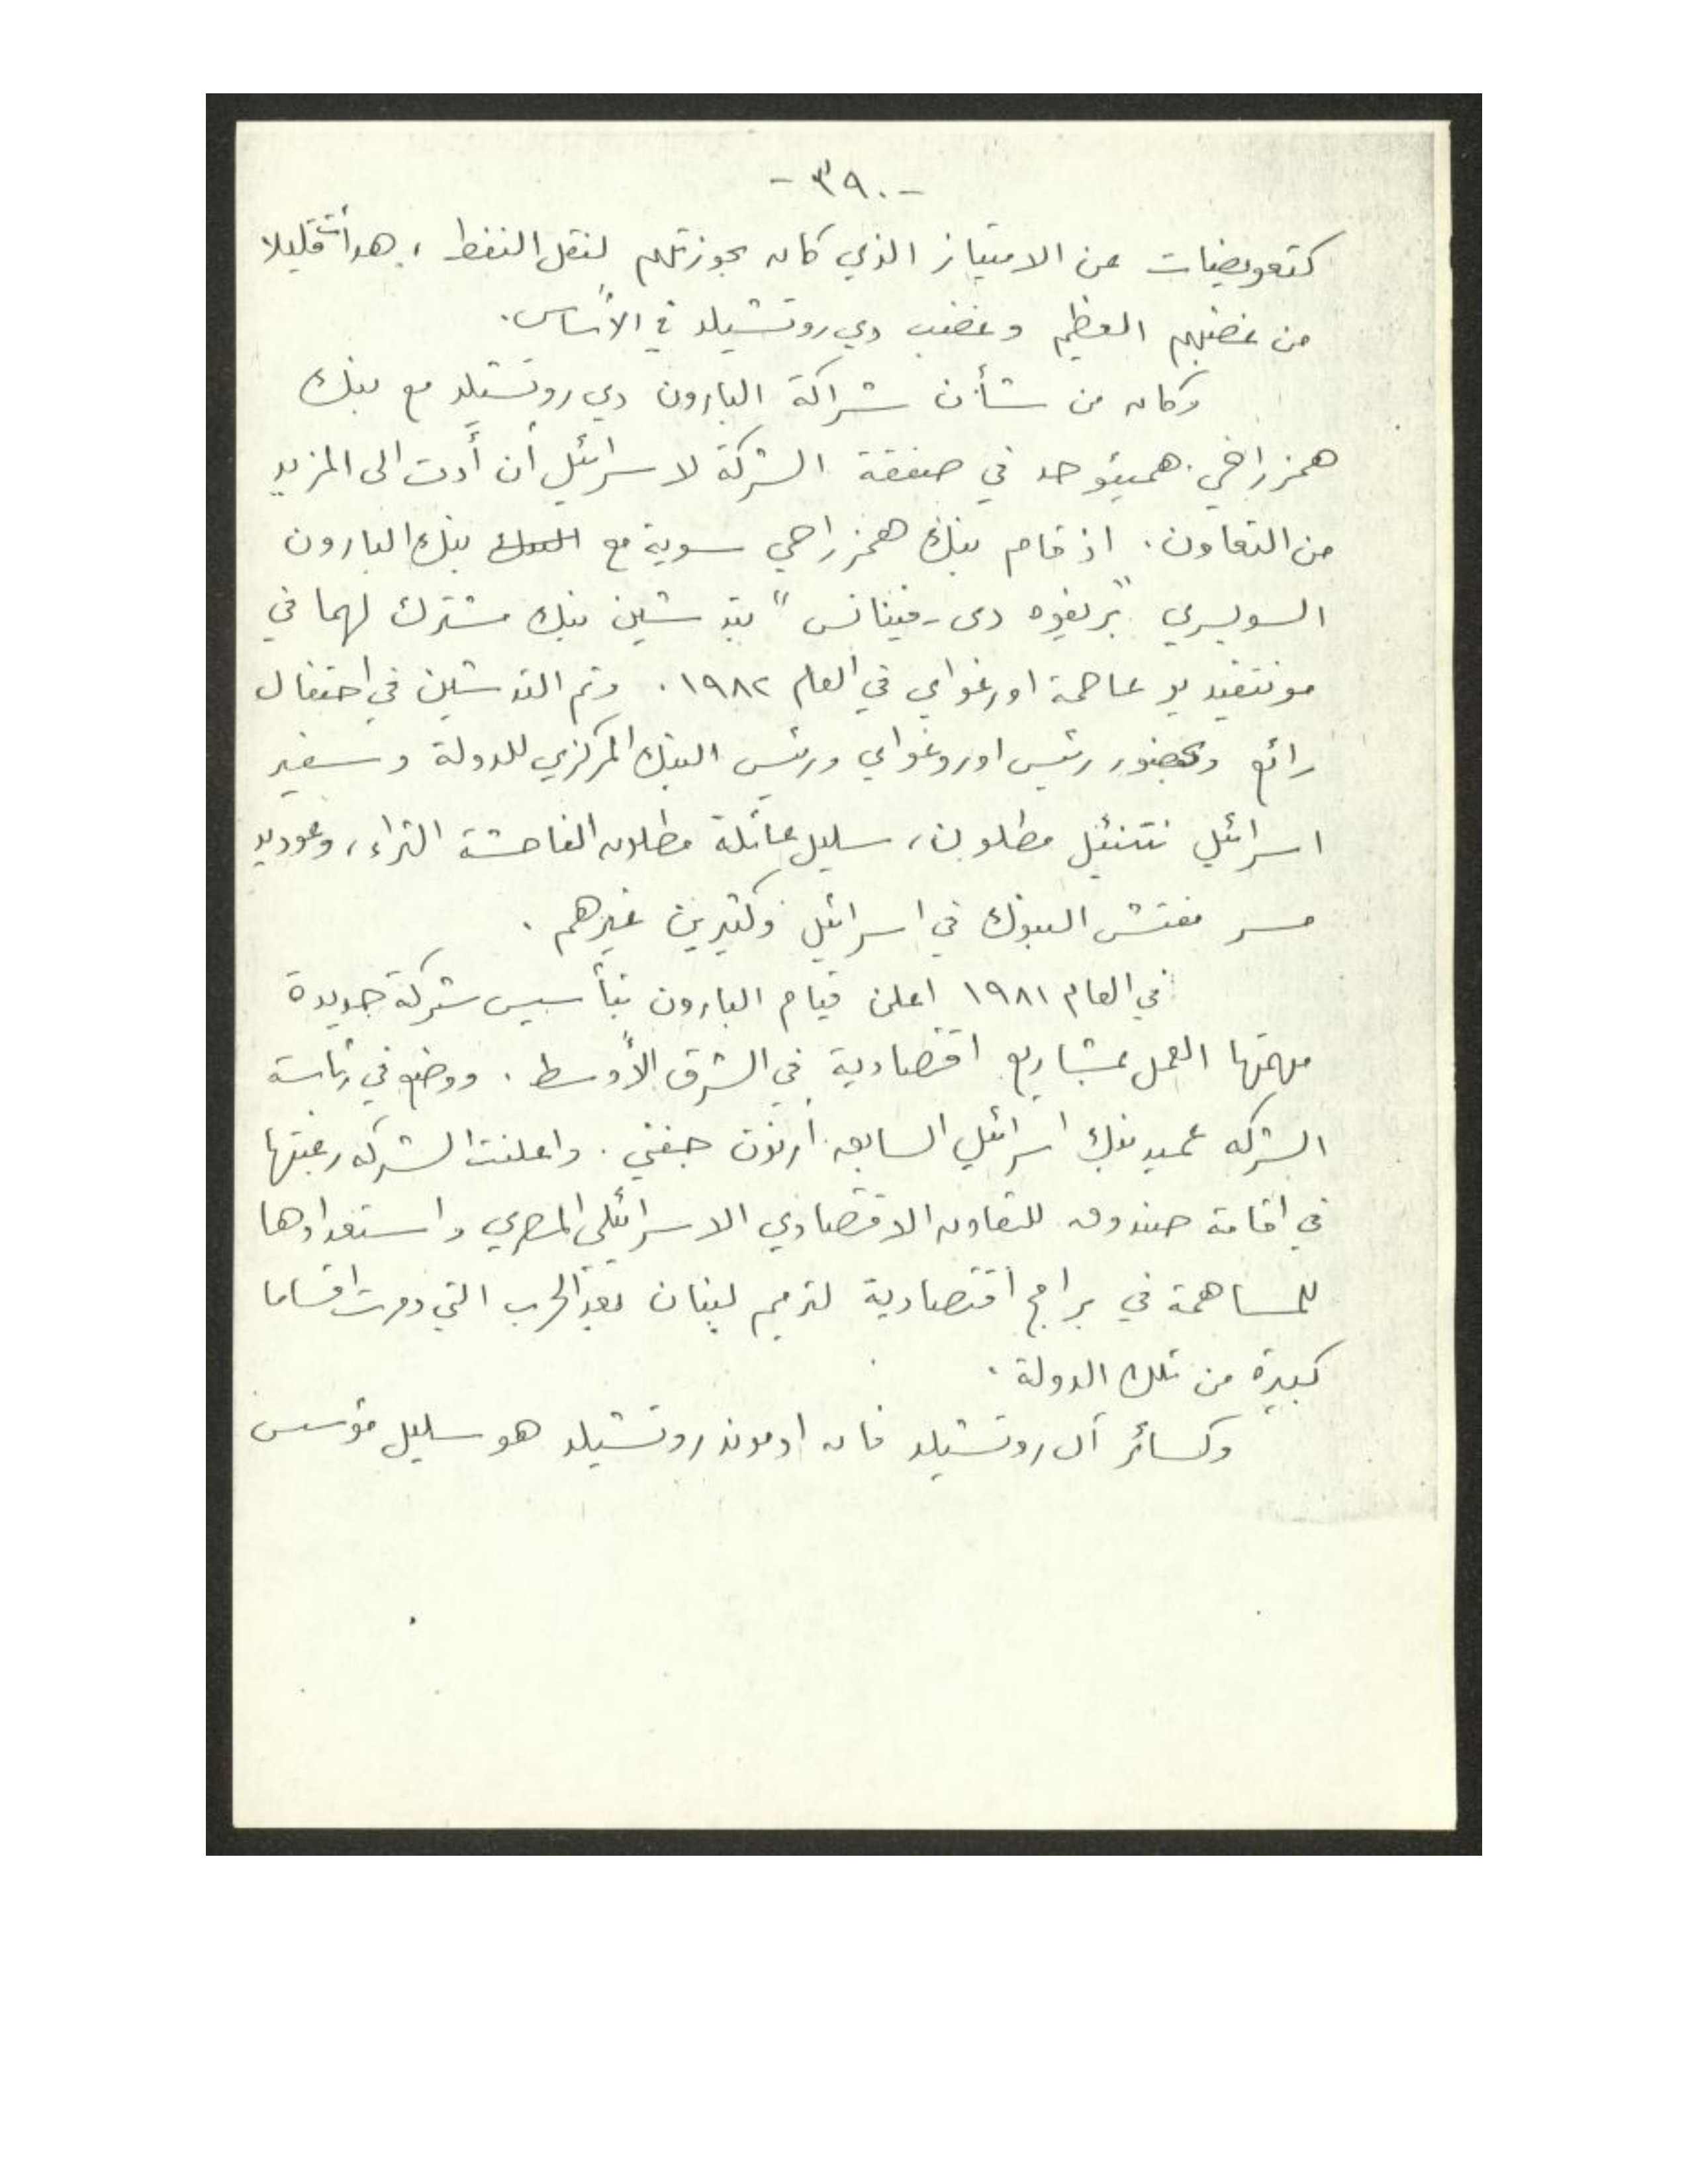 - ٣٩٠ -
كتعويضات عن الامتياز الذي كان بحوزتهم لنقل النفط ، هدأت قليلا
من غضبهم العظيم وغضب دي روتشيلد في الأساس.
وكان من شأن شراكة البارون دي روتشيلد مع بنك
همزراحي همیئوحد في صفقة الشركة لاسرائيل أن أدت الى المزيد
من التعاون. اذ قام بنك همزراحي سوية مع بنك البارون
السويسري "بريفيه دى-فينانس" بتدشين بنك مشترك لهما في
مونتفيديو عاصمة اورغواي في العام ١٩٨٢. وتم التدشين في احتفال
رائع وبحضور رئيس اوروغواي ورئيس البنك المركزي للدولة وسفير
اسرائيل نتنئيل مطلون، سليل عائلة مطلون الفاحشة الثراء، وعوديد
مسر مفتش البنوك في اسرائيل وكثيرين غيرهم.
في العام ١٩٨١ اعلن قيام البارون بتأسيس شركة جديدة
مهمتها العمل بمشاريع اقتصادية في الشرق الأوسط. ووضع في رئاسة
الشركه عميد بنك اسرائيل السابق أرنون جفني. واعلنت الشركه رغبتها
في اقامة صندوق للتعاون الاقتصادي الاسرائيلي المصري واستعدادها
للمساهمة في برامج اقتصادية لترميم لبنان بعد الحرب التي دمرت اقساما
كبيرة من تلك الدولة.
وكسائر آل روتشيلد فان ادموند روتشيلد هو سليل مؤسس